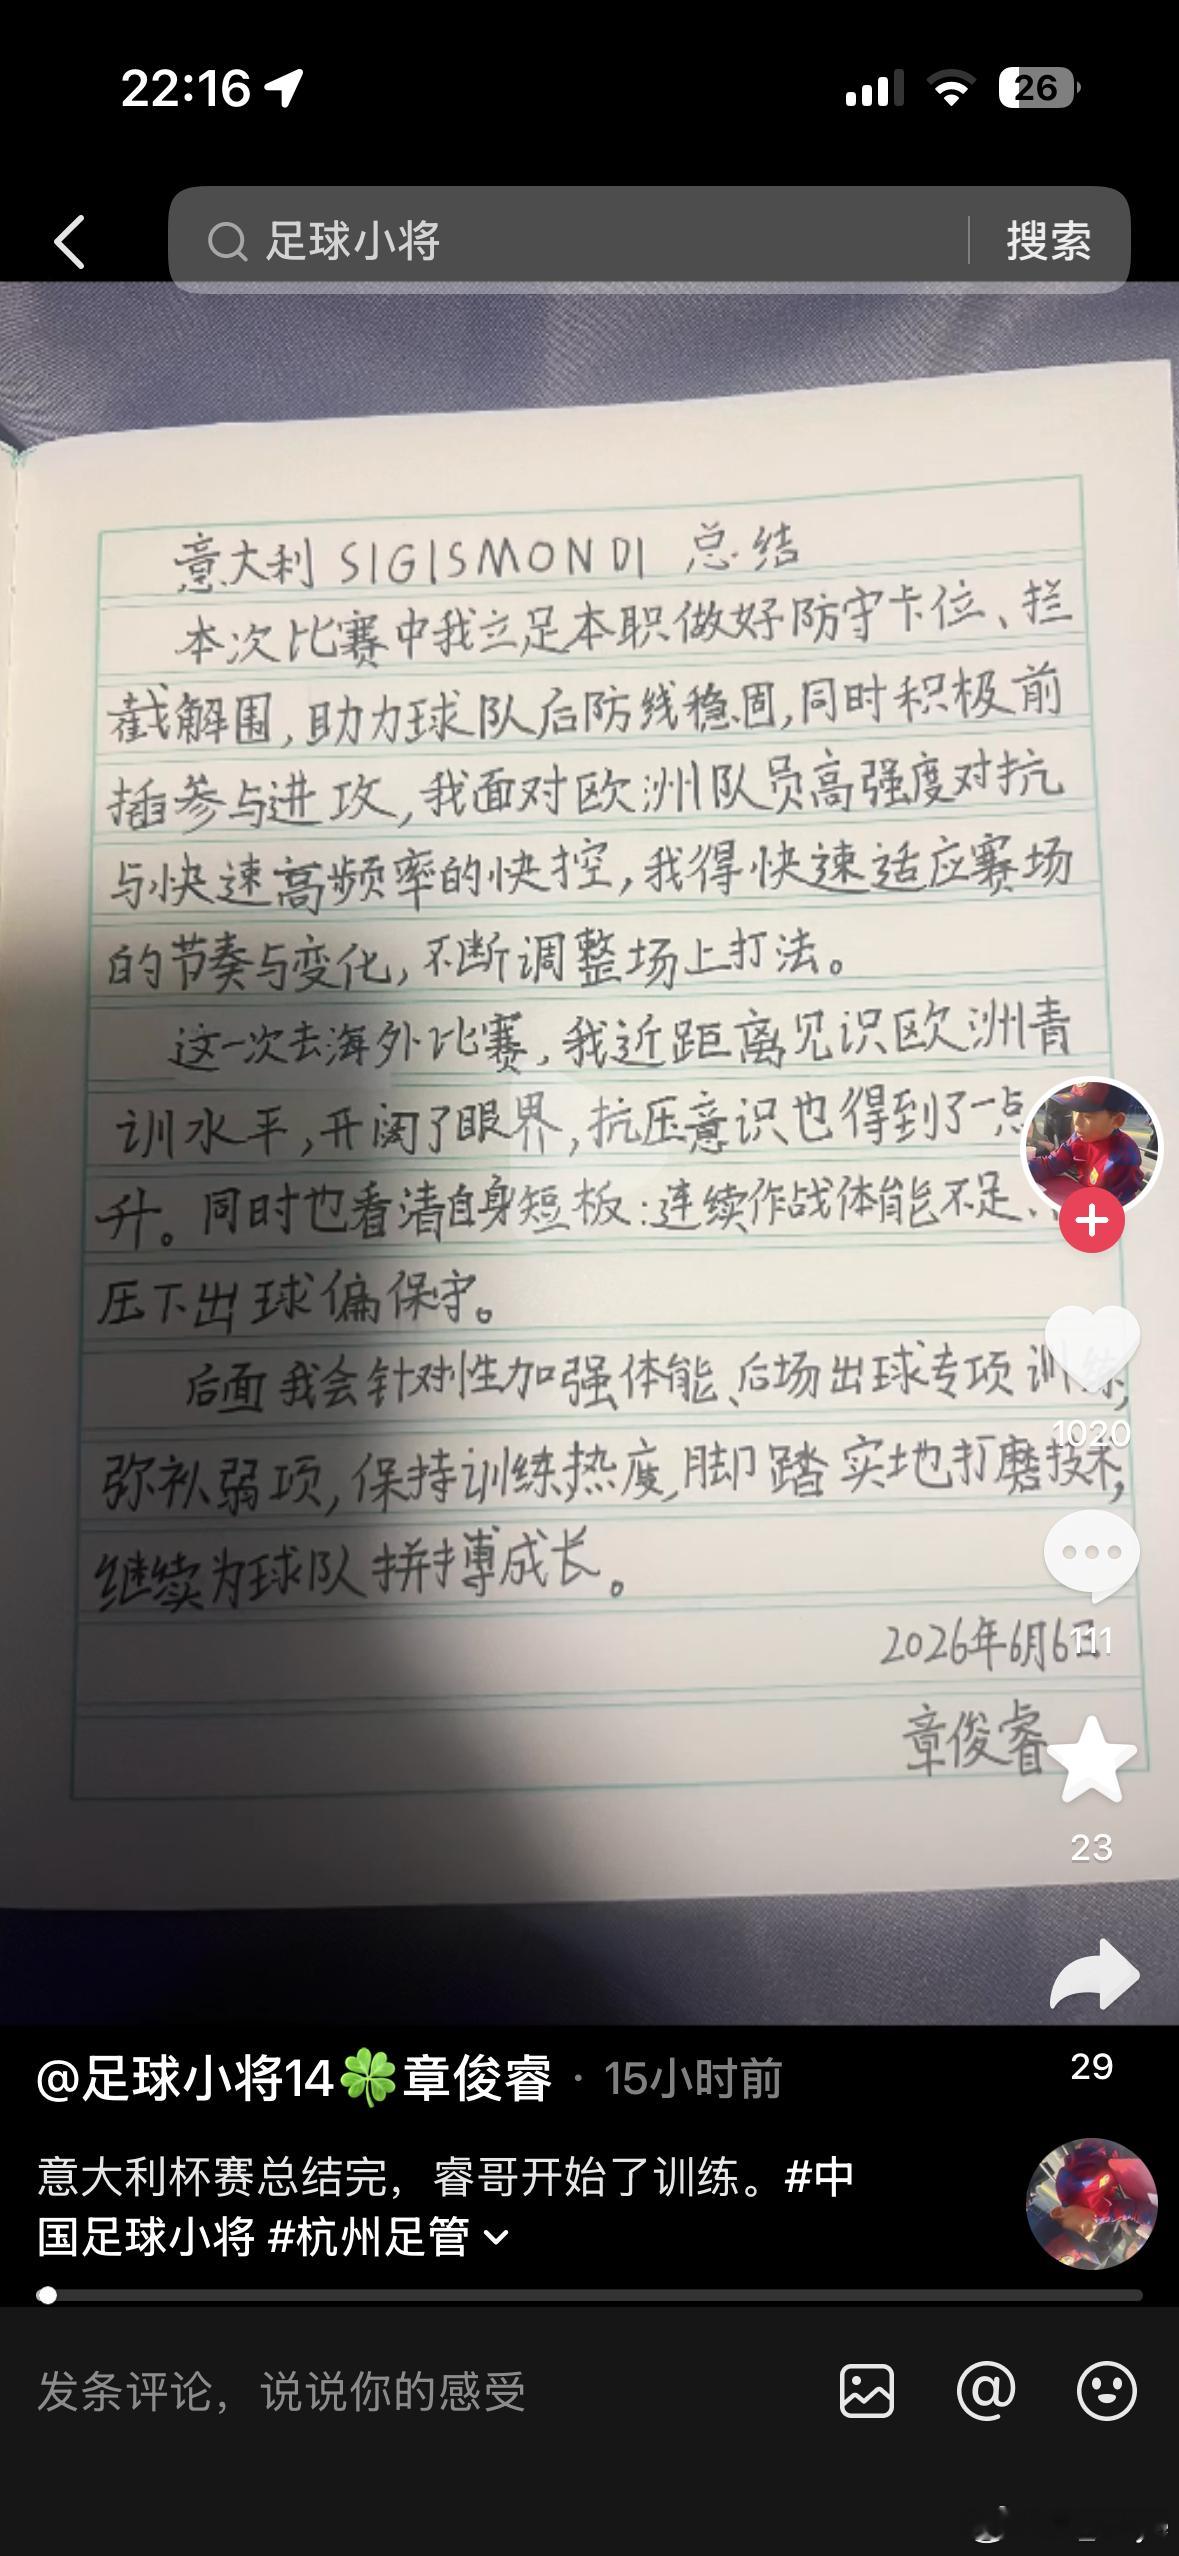 22:16
26
足球小将
搜索
意大利 SIGISMONDI 总结
本次比赛中我立足本职做好防守卡位、拦
截解围,助力球队后防线稳固,同时积极前
插参与进攻,我面对欧洲队员高强度对抗
与快速高频率的快控,我得快速适应赛场
的节奏与变化,不断调整场上打法。
这一次去海外比赛,我近距离见识欧洲青
训水平,开阔了眼界,抗压意识也得到了一点
升。同时也看清自身短板:连续作战体能不足、
压下出球偏保守。
后面我会针对性加强体能、后场出球专项训练,
弥补弱项,保持训练热度,脚踏实地打磨技术,
继续为球队拼搏成长。
2026年6月6日
章俊睿
1020
111
23
29
@足球小将14🍀章俊睿 · 15小时前
意大利杯赛总结完，睿哥开始了训练。#中
国足球小将 #杭州足管
发条评论，说说你的感受